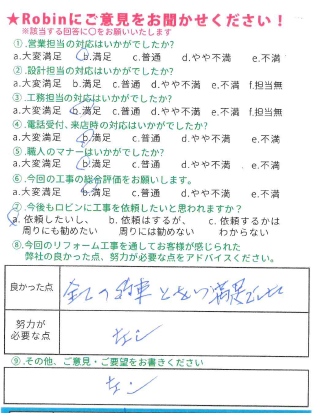 ★Robinにご意見をお聞かせください！
※該当する回答に〇をお願いいたします
①.営業担当の対応はいかがでしたか?
a.大変満足 b.満足 c.普通 d.やや不満 e.不満
②.設計担当の対応はいかがでしたか?
a.大変満足 b.満足 c.普通 d.やや不満 e.不満 f.担当無
③.工務担当の対応はいかがでしたか?
a.大変満足 b.満足 c.普通 d.やや不満 e.不満 f.担当無
④.電話受付、来店時の対応はいかがでしたか?
a.大変満足 b.満足 c.普通 d.やや不満 e.不満
⑤.職人のマナーはいかがでしたか?
a.大変満足 b.満足 c.普通 d.やや不満 e.不満
⑥.今回の工事の総合評価をお願いします。
a.大変満足 b.満足 c.普通 d.やや不満 e.不満
⑦.今後もロビンに工事を依頼したいと思われますか？
a.依頼したいし、 b.依頼はするが、 c.依頼するかは
周りにも勧めたい 周りには勧めない わからない
⑧.今回のリフォーム工事を通してお客様が感じられた
弊社の良かった点、努力が必要な点をアドバイスください。
良かった点 全ての 満足でした
努力が
必要な点 なし
⑨.その他、ご意見・ご要望をお書きください
なし